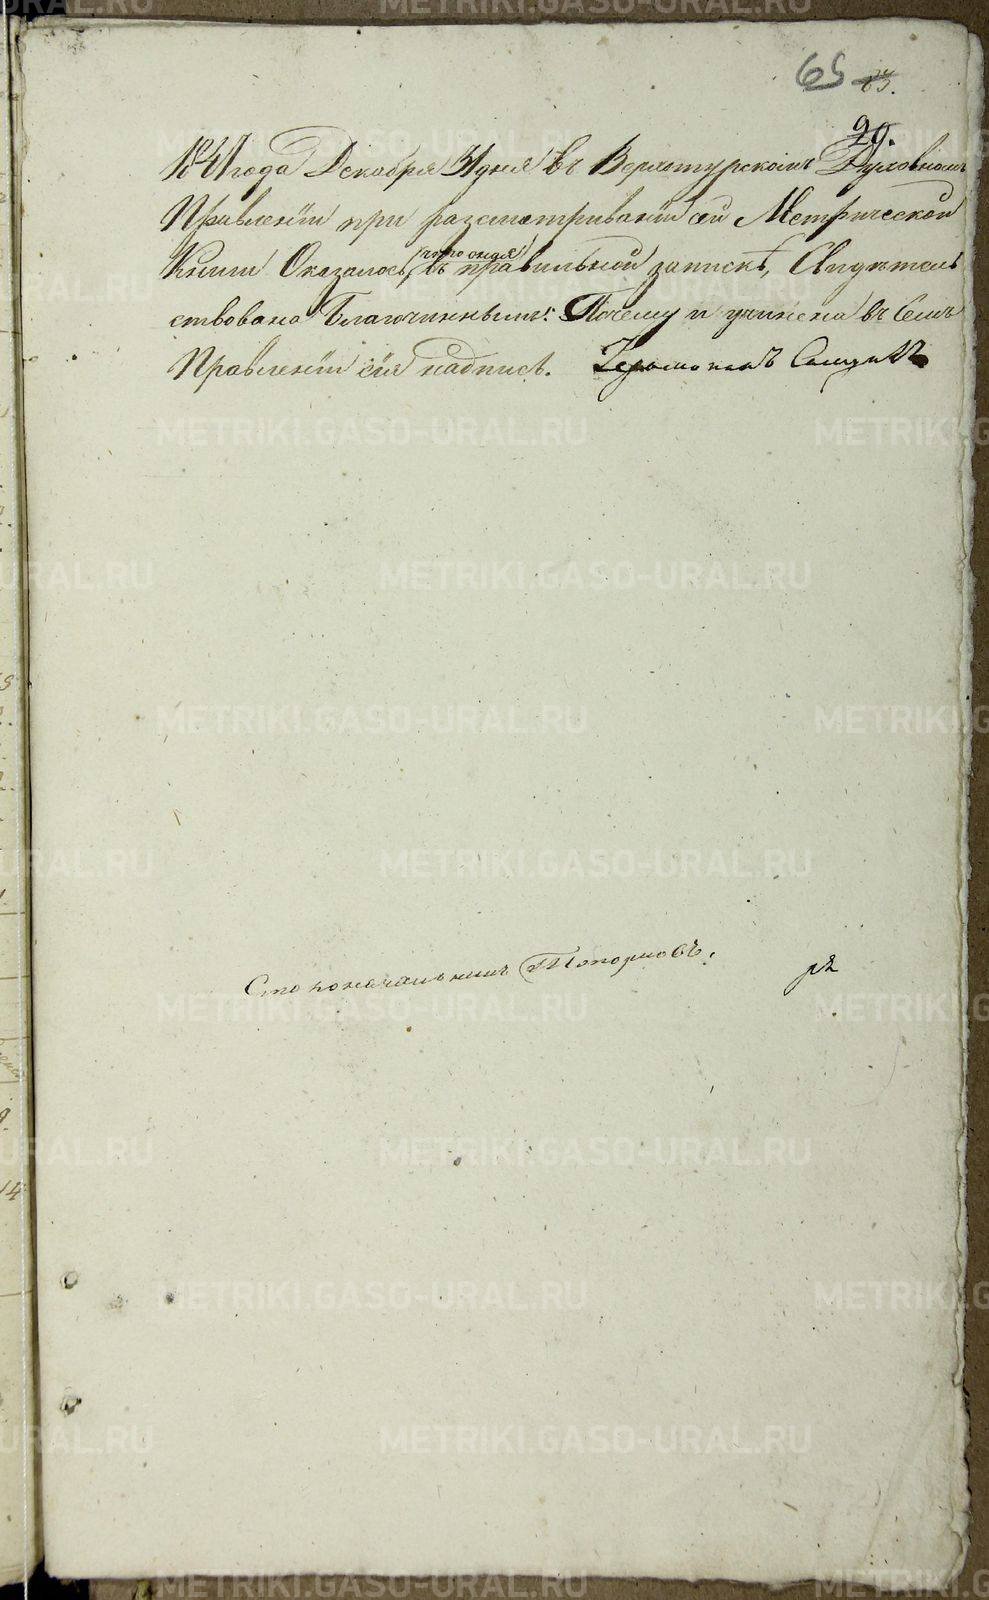 65 83.
29.
1841 года Декабря 31 дня въ Верхотурскомъ Духовномъ
Правленiи при разсматриванiи сей Метрической
Книги Оказалось, что оная въ правильной запискѣ, Свидѣтель
ствована Благочиннымъ: Почему и учинена въ Семъ
Правленiи сiя надпись. Iеромонахъ
Столоначальникъ Топорковъ.
METRIKI.GASO-URAL.RU